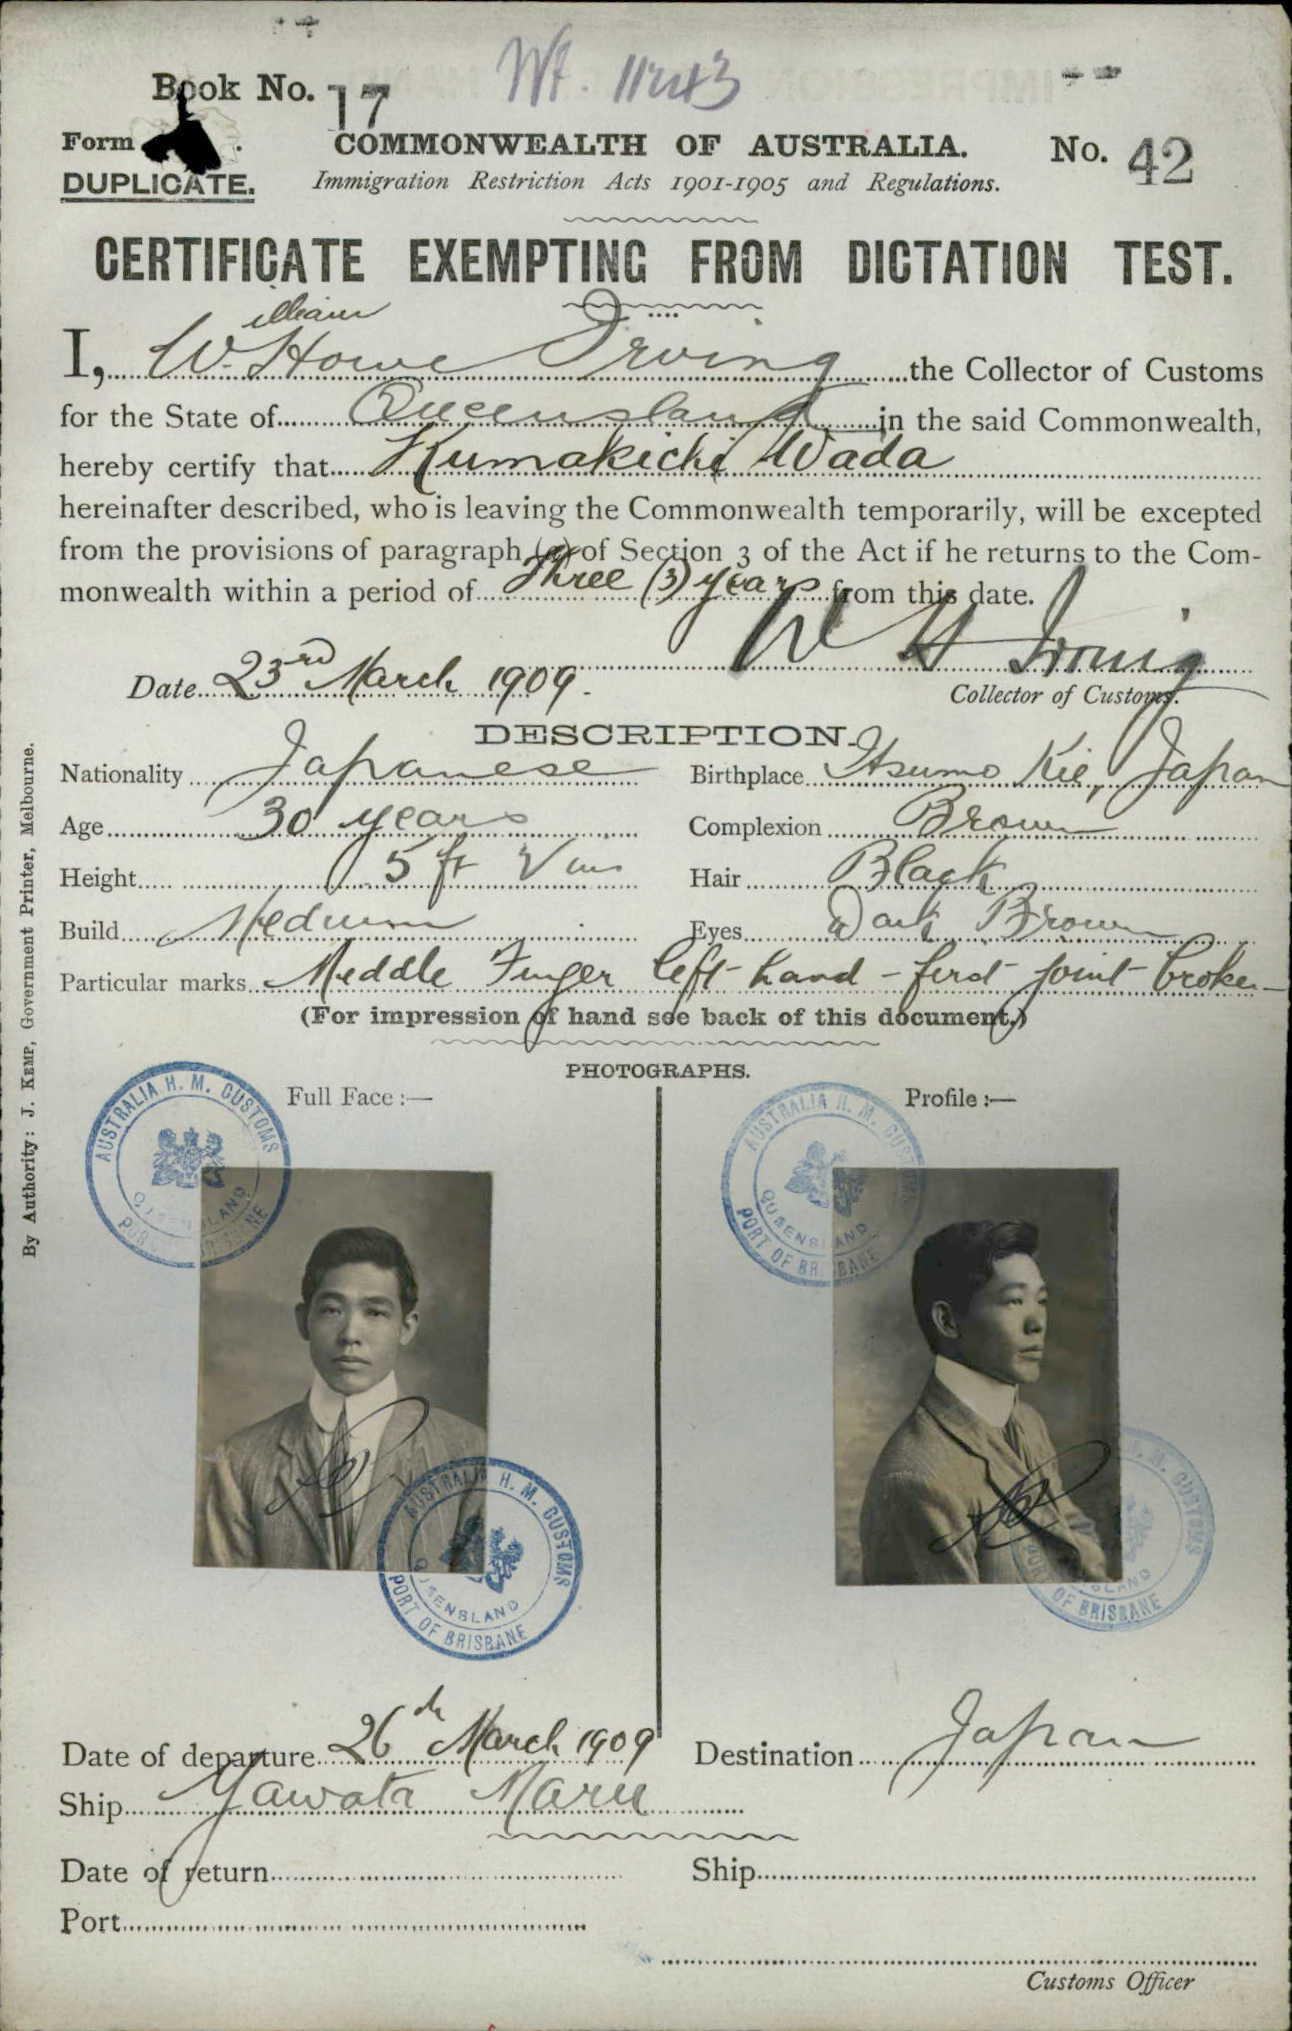 Wt. 11243
Book No. 17
Form .
COMMONWEALTH OF AUSTRALIA.
No. 42
DUPLICATE.
Immigration Restriction Acts 1901-1905 and Regulations.
CERTIFICATE EXEMPTING FROM DICTATION TEST.
illiam
I, W. Howe Irving the Collector of Customs
for the State of Queensland in the said Commonwealth,
hereby certify that Kumakichi Wada
hereinafter described, who is leaving the Commonwealth temporarily, will be excepted
from the provisions of paragraph (a) of Section 3 of the Act if he returns to the Com-
monwealth within a period of Three (3) years from this date.
W H Irving
Date 23rd March 1909.
Collector of Customs.
DESCRIPTION.
Nationality Japanese
Birthplace Itsumo Kie, Japan
Age 30 years
Complexion Brown
Height 5 ft
Hair Black
Build Medium
Eyes Dark Brown
Particular marks Middle Finger left hand - first joint broken
(For impression of hand see back of this document.)
PHOTOGRAPHS.
Full Face :—
Profile :—
AUSTRALIA H. M. CUSTOMS
QUEENSLAND
PORT OF BRISBANE
AUSTRALIA H. M. CUSTOMS
QUEENSLAND
PORT OF BRISBANE
AUSTRALIA H. M. CUSTOMS
QUEENSLAND
PORT OF BRISBANE
H. M. CUSTOMS
OF BRISBANE
Date of departure 26th March 1909
Destination Japan
Ship Yawata Maru
Date of return
Ship
Port
Customs Officer
By Authority: J. KEMP, Government Printer, Melbourne.